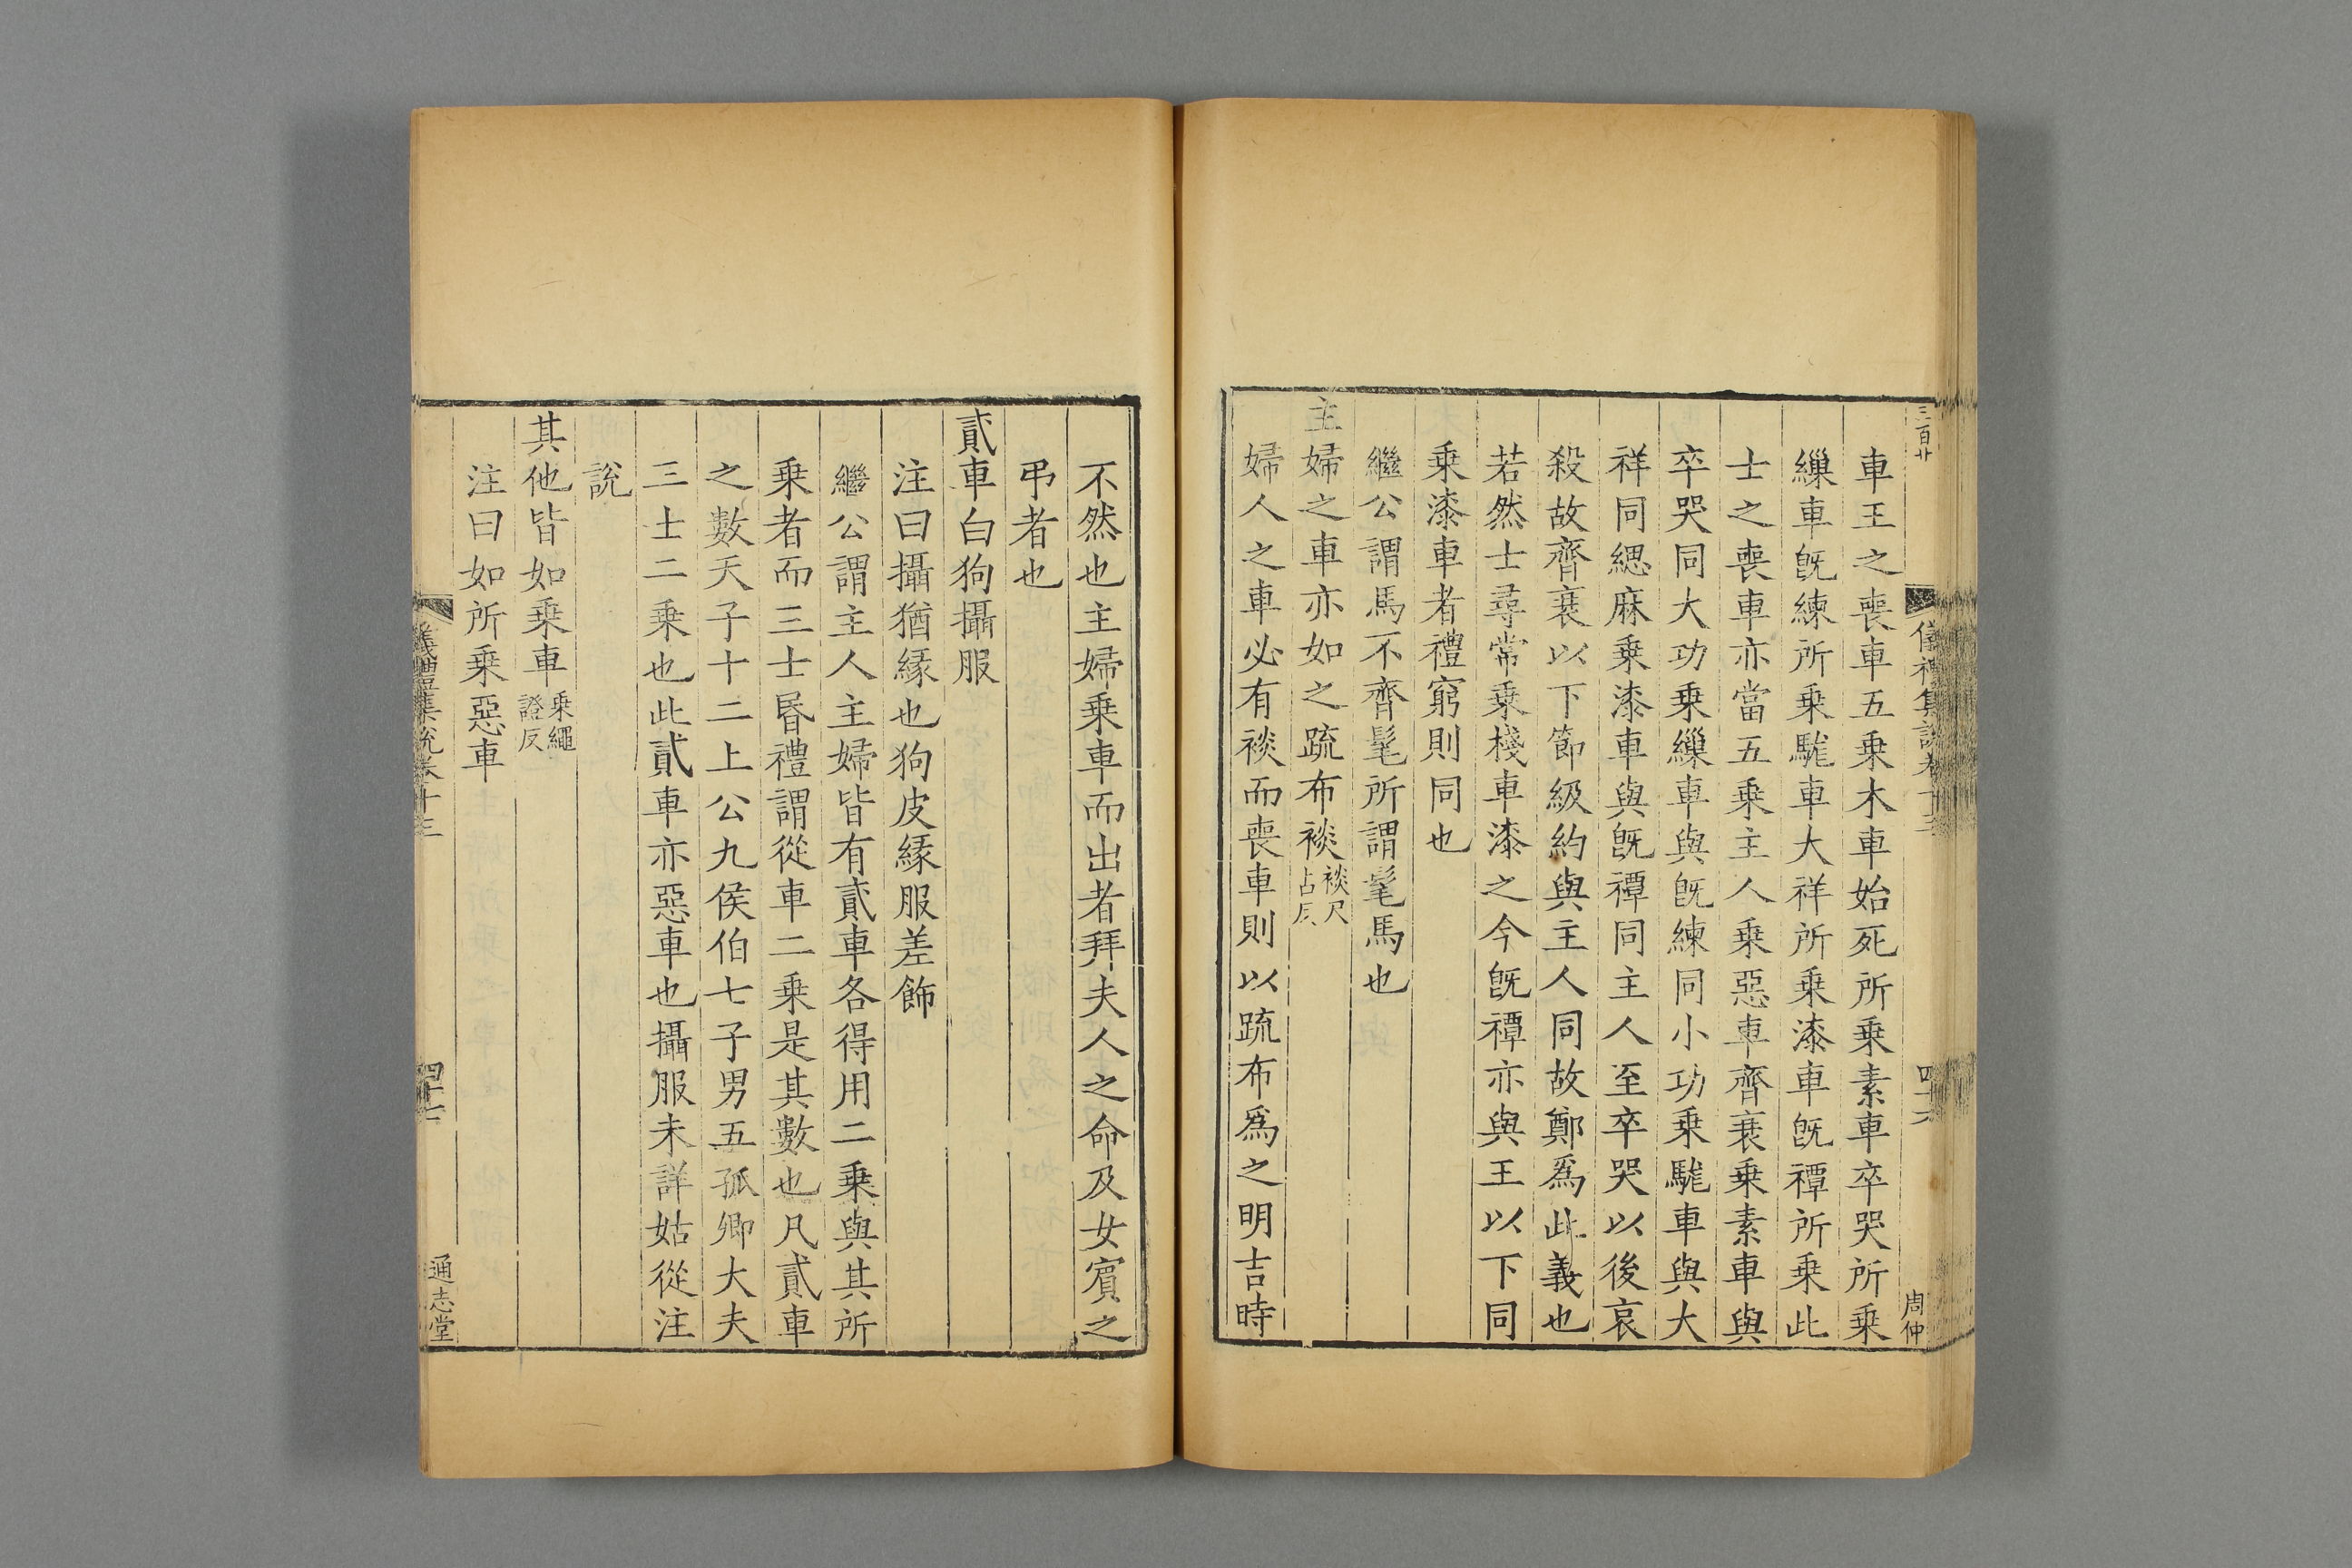 三百廿
儀禮集說卷十三
四十六
周仲
車王之喪車五乗木車始死所乗素車卒哭所乗
繅車旣練所乗駹車大祥所乗漆車旣禫所乗此
士之喪車亦當五乗主人乗惡車齊衰乗素車與
卒哭同大功乗繅車與旣練同小功乗駹車與大
祥同緦麻乗漆車與旣禫同主人至卒哭以後哀
殺故齊衰以下節級約與主人同故鄭爲此義也
若然士尋常乗棧車漆之今旣禫亦與王以下同
乗漆車者禮窮則同也
繼公謂馬不齊髦所謂髦馬也
主婦之車亦如之疏布裧裧尺占反
婦人之車必有裧而喪車則以疏布爲之明吉時
不然也主婦乗車而出者拜夫人之命及女賔之
弔者也
貳車白狗攝服
注曰攝猶緣也狗皮緣服差飾
繼公謂主人主婦皆有貳車各得用二乗與其所
乗者而三士昏禮謂從車二乗是其數也凡貳車
之數天子十二上公九侯伯七子男五孤卿大夫
三士二乗也此貳車亦惡車也攝服未詳姑從注
說
其他皆如乗車乗繩證反
注曰如所乗惡車
儀禮集說卷十三
四十七
通志堂